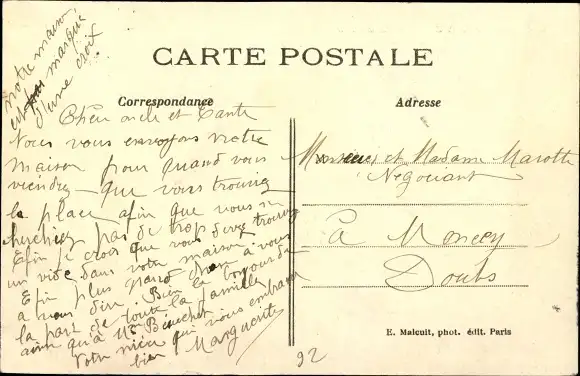 Notre maison
est marqué
d'une croix
CARTE POSTALE
Correspondance
Adresse
Cher oncle et Tante
Nous vous envoyons notre
maison pour quand vous
viendrez que vous trouviez
la place afin que vous ne
cherchiez pas de trop
Efin je crois que vous devez trouver
un vide dans votre maison.
Efin plus rien à vous
a vous dire Bien le bonjour de
la part de toute la famille
ainsi qu'à Mme Beuchet
Votre nièce qui vous embrasse
bien Marguerite
Monsieur et Madame Marotte
Négociant
à Moncey
Doubs
E. Malcuit, phot. édit. Paris
92